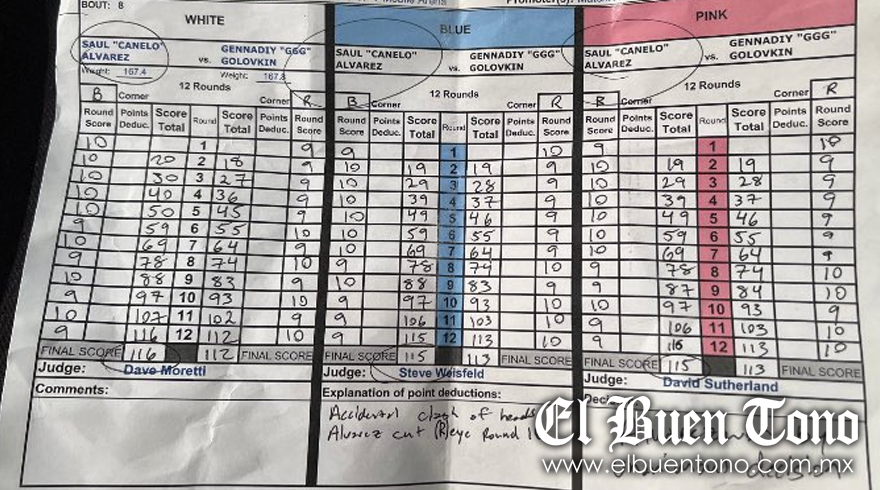 BOUT: 8
WHITE BLUE PINK
SAUL "CANELO" GENNADIY "GGG" SAUL "CANELO" GENNADIY "GGG" SAUL "CANELO" GENNADIY "GGG"
ALVAREZ vs. GOLOVKIN ALVAREZ vs. GOLOVKIN ALVAREZ vs. GOLOVKIN
Weight: 167.4 Weight: 167.8
12 Rounds 12 Rounds 12 Rounds
B Corner Corner R B Corner Corner R B Corner Corner R
Round Score Points Deduc. Score Total Round Score Total Points Deduc. Round Score Round Score Points Deduc. Score Total Round Score Total Points Deduc. Round Score Round Score Points Deduc. Score Total Round Score Total Points Deduc. Round Score
10 1 9 9 1 10 9 1 10
10 20 2 18 9 10 19 2 19 9 10 19 2 19 9
10 30 3 27 9 10 29 3 28 9 10 29 3 28 9
10 40 4 36 9 10 39 4 37 9 10 39 4 37 9
10 50 5 45 9 10 49 5 46 9 10 49 5 46 9
9 59 6 55 10 10 59 6 55 9 10 59 6 55 9
10 69 7 64 9 10 69 7 64 9 10 69 7 64 9
9 78 8 74 10 9 78 8 74 10 9 78 8 74 10
10 88 9 83 9 10 88 9 83 9 9 87 9 84 10
9 97 10 93 10 9 97 10 93 10 10 97 10 93 9
10 107 11 102 9 9 106 11 103 10 9 106 11 103 10
9 116 12 112 10 9 115 12 113 10 9 12 113 10
FINAL SCORE 116 112 FINAL SCORE FINAL SCORE 115 113 FINAL SCORE FINAL SCORE 115 113 FINAL SCORE
Judge: Dave Moretti Judge: Steve Weisfeld Judge: David Sutherland
Comments: Explanation of point deductions:
Accidental clash of heads
Alvarez cut (R) eye Round
decision
El Buen Tono
www.elbuentono.com.mx